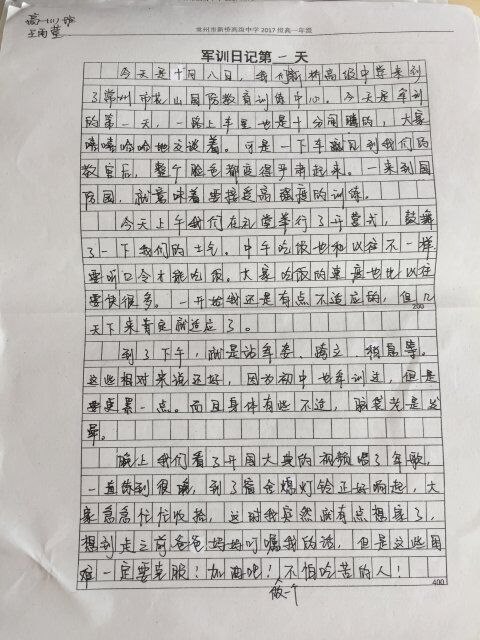 高一(17)班
王雨莹
常州市新桥高级中学2017级高一年级
军训日记第一天
今天是十月八日，我们新桥高级中学来到
了常州市茅山国防教育训练中心。今天是军训
的第一天，一路上车里也是十分闹腾的，大家
嘻嘻哈哈地交谈着。可是一下车就见到我们的
教官后，整个脸色都变得严肃起来。一来到国
防园，就意味着要接受高强度的训练。
今天上午我们在礼堂举行了开营式，鼓舞
了一下我们的士气。中午吃饭也和以往不一样，
要听口令才能吃饭。大家吃饭的速度也比以往
要快很多。一开始我还是有点不适应的，但几
200
天下来肯定就适应了。
到了下午，就是站军姿、跨立、稍息等。
这些相对来说还好，因为初中也军训过，但是
要更累一点。而且身体有些不适，脑袋老是发
晕。
晚上我们看了开国大典的视频唱了军歌，
一直练到很晚，到了宿舍熄灯铃正好响起，大
家急急忙忙收拾，这时我突然就有点想家了，
想到走之前爸爸妈妈叮嘱我的话，但是这些困
难一定要克服！加油吧！不怕吃苦的人！
400
做一个